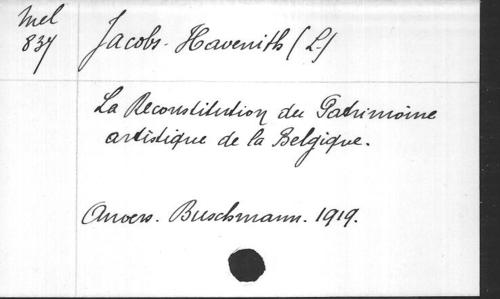 Mel
837
Jacobs-Havenith (L.)
La Reconstitution du Patrimoine
artistique de la Belgique.
Anvers. Buschmann. 1919.